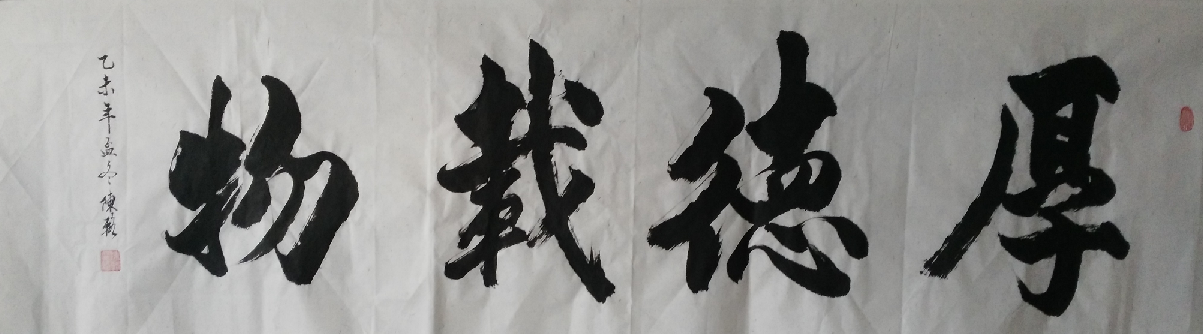 厚德載物
乙未年孟冬陳頵